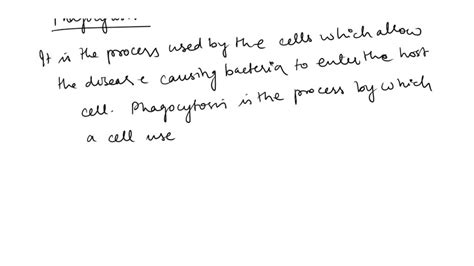 It is the process used by the cells which allow
the disease causing bacteria to enter the host
cell. Phagocytosis is the process by which
a cell use